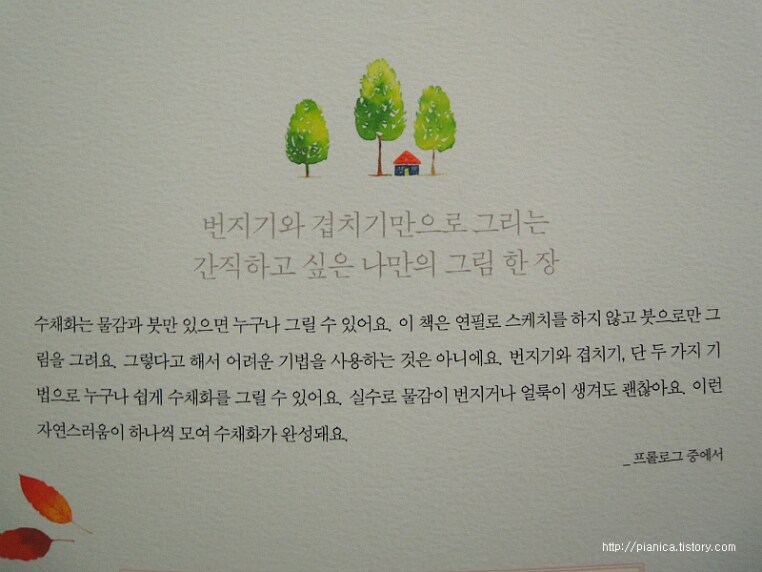 번지기와 겹치기만으로 그리는
간직하고 싶은 나만의 그림 한 장
수채화는 물감과 붓만 있으면 누구나 그릴 수 있어요. 이 책은 연필로 스케치를 하지 않고 붓으로만 그
림을 그려요. 그렇다고 해서 어려운 기법을 사용하는 것은 아니에요. 번지기와 겹치기, 단 두 가지 기
법으로 누구나 쉽게 수채화를 그릴 수 있어요. 실수로 물감이 번지거나 얼룩이 생겨도 괜찮아요. 이런
자연스러움이 하나씩 모여 수채화가 완성돼요.
_ 프롤로그 중에서
http://pianica.tistory.com